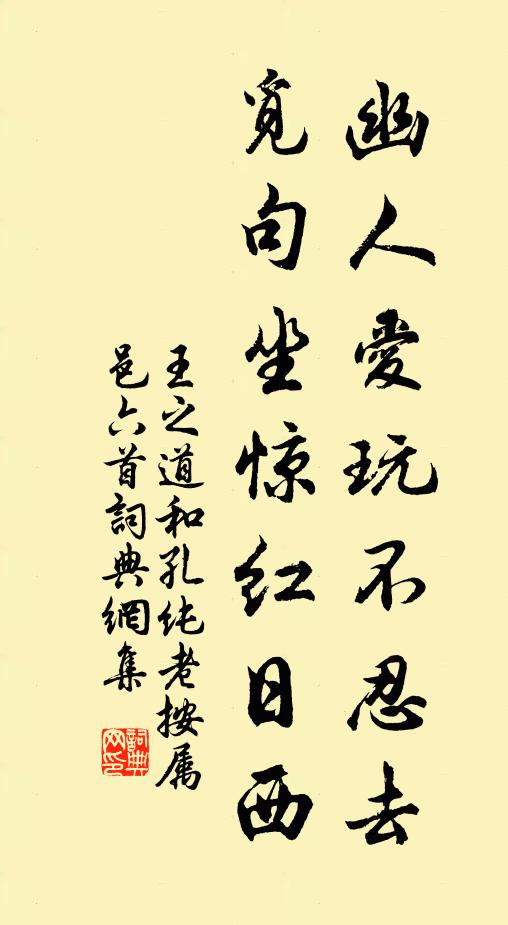 幽人愛玩不忍去
覓句坐惊红日西
王之道和孔纯老按属
邑六首詞典網集
詞典网印